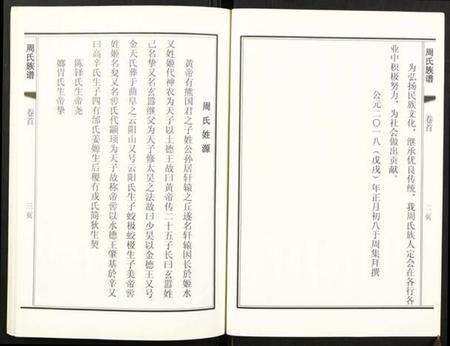 周氏族谱
卷首
二页
为弘扬民族文化，继承优良传统，我周氏族人定会在各行各
业中积极努力，为社会做出贡献。
公元二〇一八（戊戌）年正月初八于周集拜撰
周氏姓源
黄帝有熊国君之子姓公孙居轩辕之丘遂名轩辕因长於姬水
又姓姬代神农为天子以土德王故曰黄帝传二十五子长曰玄嚣姓
己名挚又名玄嚣继父为天子修太昊之法故曰少昊以金德王又号
金天氏葬于曲阜之云阳山又号云阳氏生子蛟极蛟极生子美帝喾
姓姬名夋又名喾氏代颛顼为天子故称帝喾以水德王肇基於辛又
曰高辛氏生子四有邰氏姜嫄生后稷有戎氏简狄生契
陈铎氏生帝尧
娵訾氏生帝挚
周氏族谱
卷首
三页